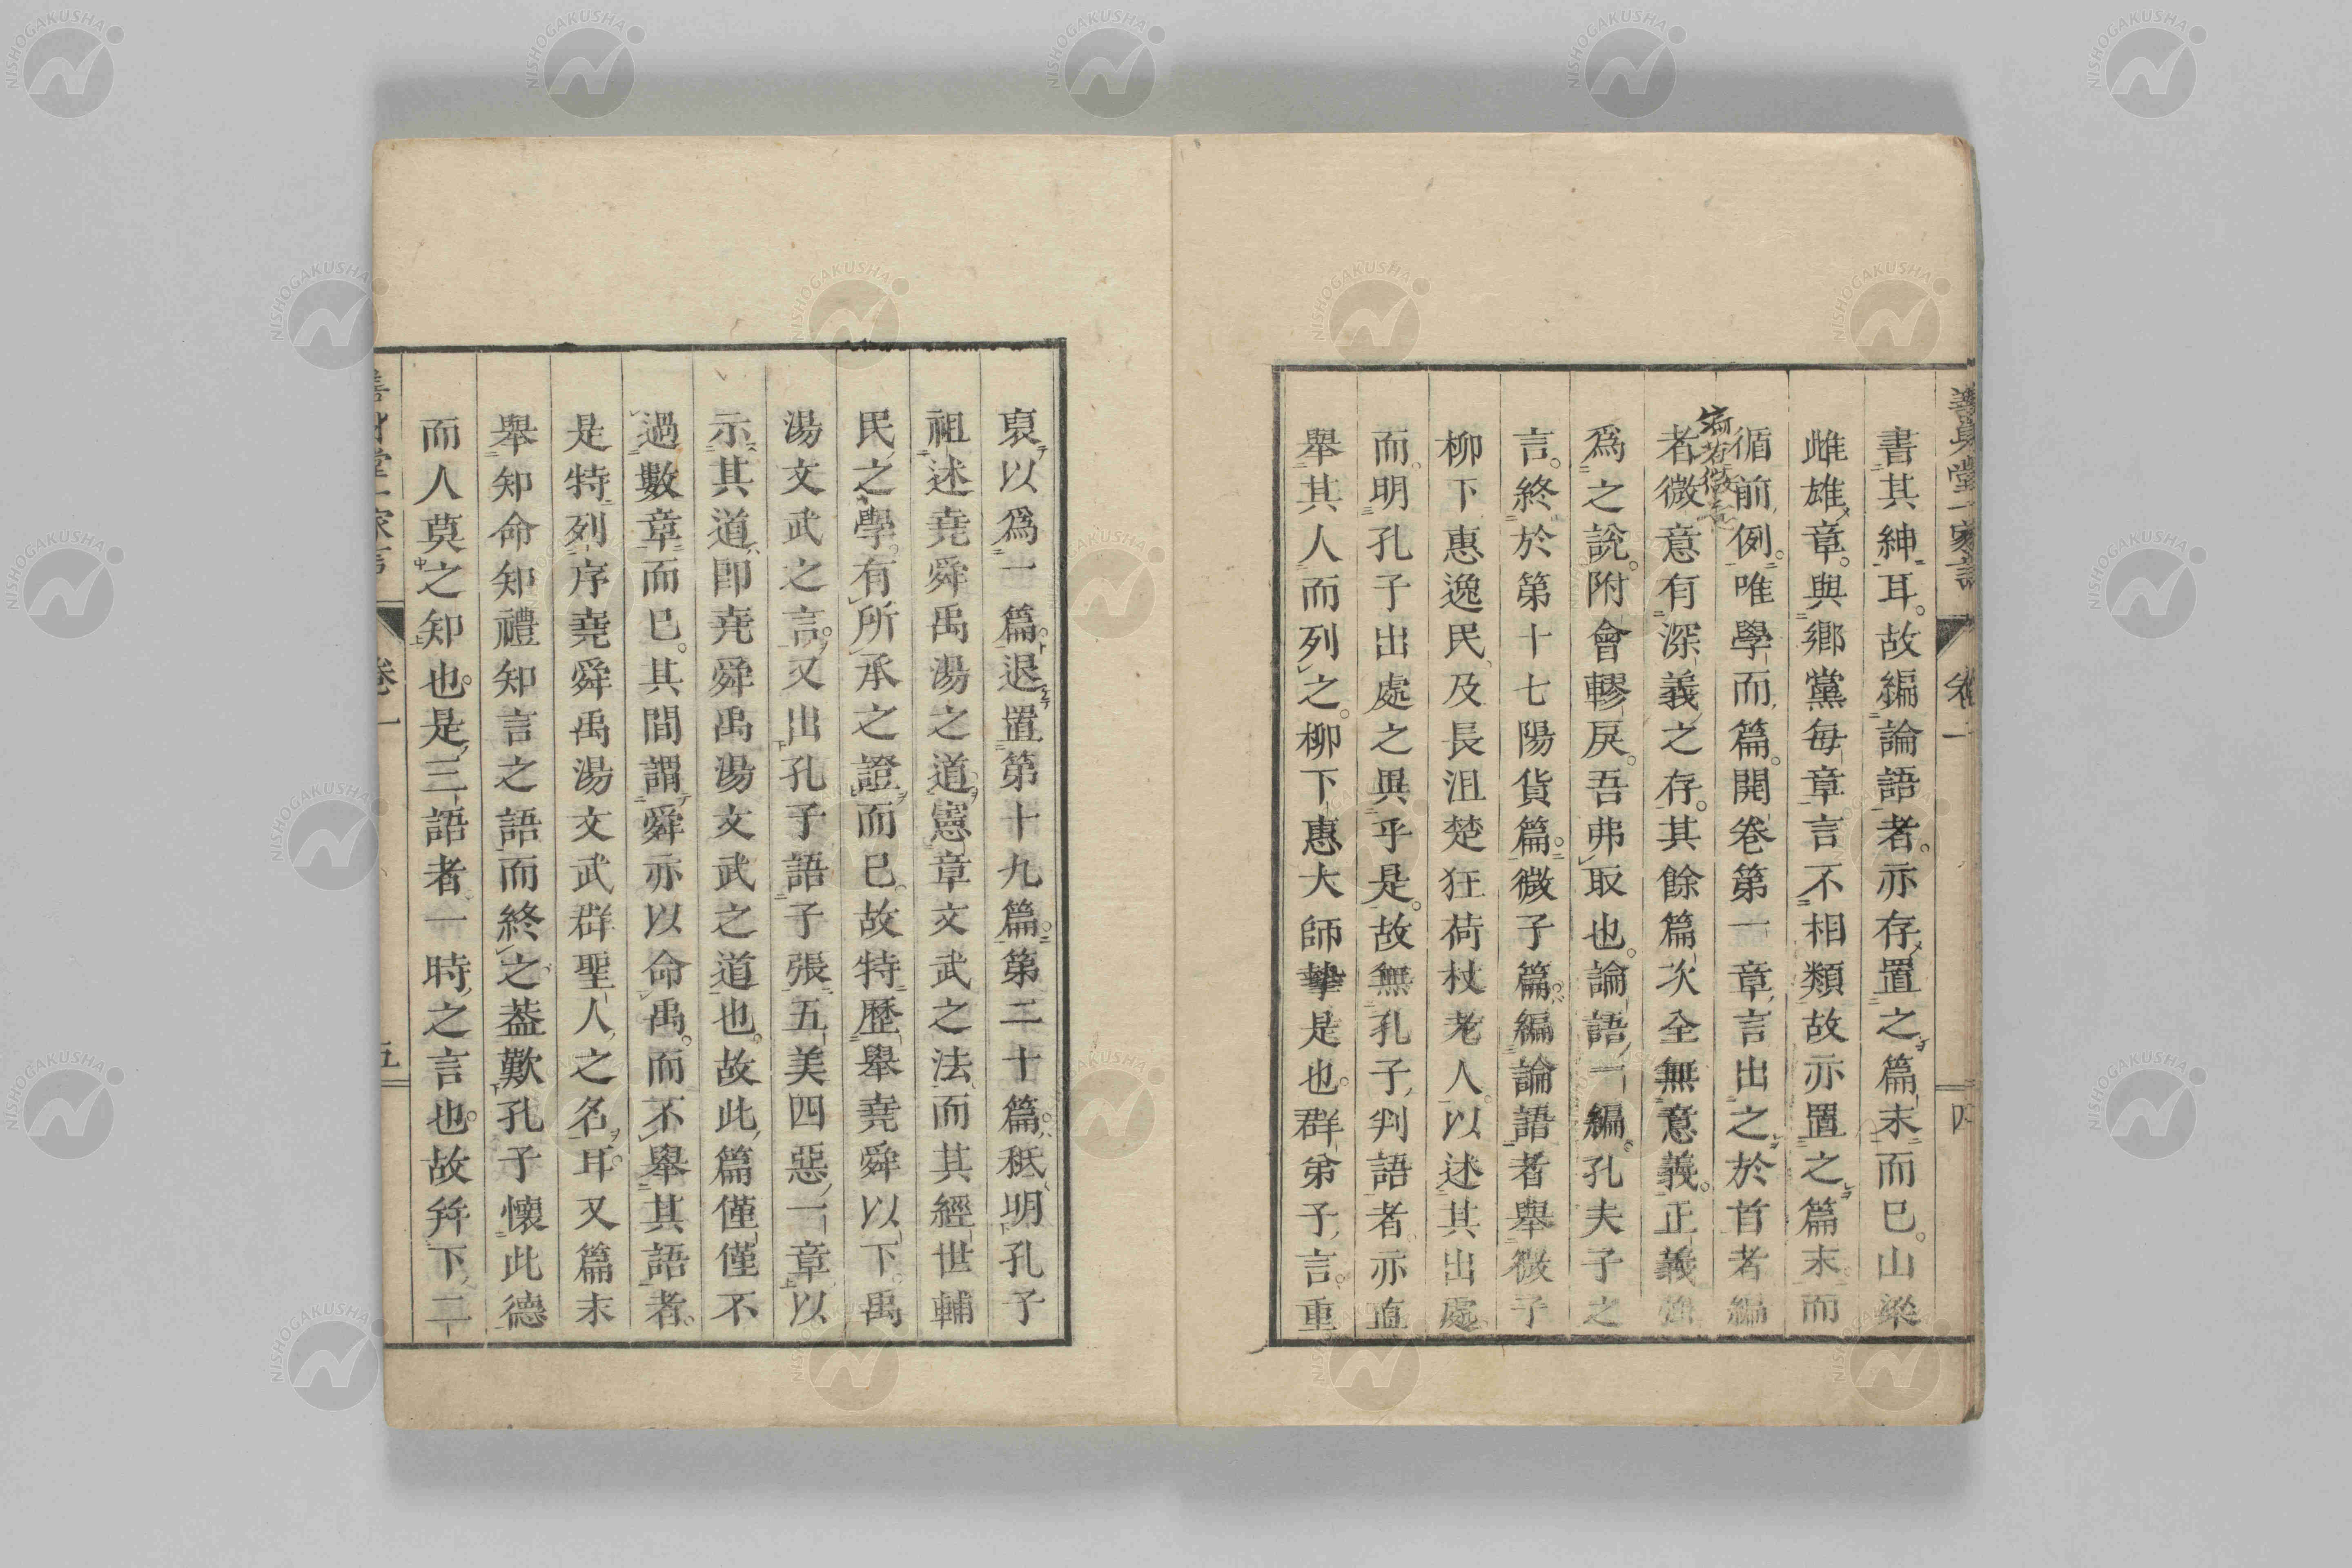 書其紳耳。故編論語者。亦存置之篇末而已。山梁
雌雄章。與鄉黨每章言不相類故亦置之篇末而
循前例。唯學而篇。開卷第一章言出之於首者編
者微意有深義之存。其餘篇次全無意義。正義強
爲之說。附會轇戾。吾弗取也。論語一編。孔夫子之
言。終於第十七陽貨篇。微子篇。編論語者舉微子
柳下惠逸民及長沮楚狂荷杖老人。以述其出處。
而。明孔子出處之異乎是。故無孔子判語者。亦直
舉其人而列之。柳下惠大師摯是也。群弟子言。重
裒以爲一篇。退置第十九篇。第二十篇。秖明孔子
祖述堯舜禹湯之道。憲章文武之法而其經世輔
民之學。有所承之證而已。故特歷舉堯舜以下。禹
湯文武之言。又出孔子語子張五美四惡一章以
示其道卽堯舜禹湯文武之道也。故此篇僅僅不
過數章而已。其間謂舜亦以命禹。而不舉其語者。
是特列序堯舜禹湯文武群聖人之名耳。又篇末
舉知命知禮知言之語而終之。蓋歎孔子懷此德
而人莫之知也。是三語者一時之言也。故并下二
卷一
五
NISHOGAKUSHA